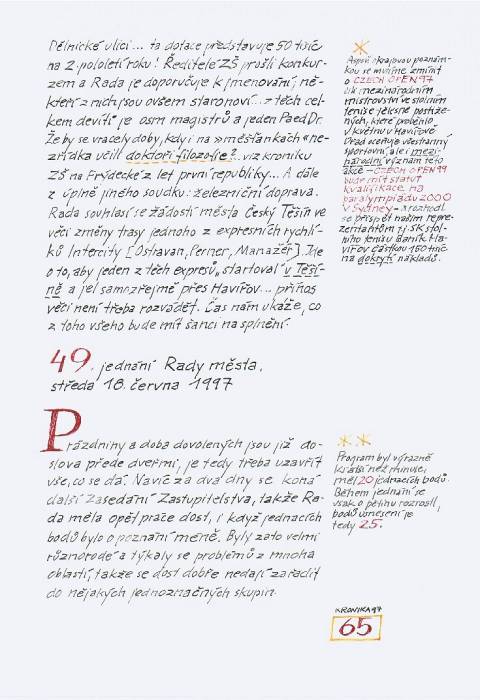 Dělnické ulici... ta dotace představuje 50 tisíc
na 2. pololetí roku! Ředitelé ZŠ prošli konkur-
zem a Rada je doporučuje k jmenování, ně-
kteří z nich jsou ovšem staronoví... z těch cel-
kem devíti je osm magistrů a jeden PaedDr.
Že by se vracely doby, kdy i na »měšťankách« ne-
zřídka učili doktoři filozofie?... viz kroniku
ZŠ na Frýdecké z let první republiky... A dále
z úplně jiného soudku: železniční doprava.
Rada souhlasí se žádostí města Český Těšín ve
věci změny trasy jednoho z expresních rychlí-
ků Intercity [Ostravan, Perner, Manažer]. Jde
o to, aby jeden z těch expresů „startoval" v Těší-
ně a jel samozřejmě přes Havířov... přínos
věci není třeba rozvádět. Čas nám ukáže, co
z toho všeho bude mít šanci na splnění.
*
Aspoň okrajovou poznám-
kou se musíme zmínit
o CZECH OPEN 97
čili mezinárodním
mistrovství ve stolním
tenise tělesně postiže-
ných, které proběhlo
v květnu v Havířově.
Úřad oceňuje všestranný
sportovní, ale i mezi-
národní význam této
akce – CZECH OPEN 99
bude mít statut
kvalifikace na
paralympiádu 2000
v Sydney – a rozhodl
se přispět našim repre-
zentantům z SK stol-
ního tenisu Baník Ha-
vířov částkou 150 tisíc
na pokrytí nákladů.
49. jednání Rady města,
středa 18. června 1997
Prázdniny a doba dovolených jsou již do-
slova přede dveřmi, je tedy třeba uzavřít
vše, co se dá. Navíc za dva dny se koná
další zasedání Zastupitelstva, takže Ra-
da měla opět práce dost, i když jednacích
bodů bylo o poznání méně. Byly zato velmi
různorodé a týkaly se problémů z mnoha
oblastí, takže se dost dobře nedají zařadit
do nějakých jednoznačných skupin.
* *
Program byl výrazně
kratší než minule,
měl 20 jednacích bodů.
Během jednání se
však o pětinu rozrostl,
bodů usnesení je
tedy 25.
KRONIKA 97
65